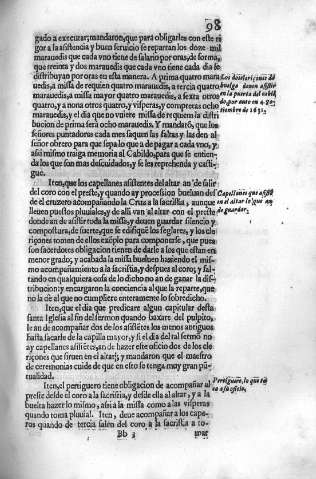 98
gado a executar; mandaron, que para obligarles con este rigor
gor a la asistencia y buen seruicio se repartan los doze mil
marauedis que cada vno tiene de salario por oras, de forma,
que treinta y dos marauedis que cada vno tiene cada dia se
distribuyan por oras en esta manera. A prima quatro marauedis,
a missa de requien quatro marauedis, a tercia quatro
marauedis, a missa mayor quatro marauedis, a sexta otros
quatro, y a nona otros quatro, y visperas, y completas ocho
marauedis, y el dia que no vuiere missa de requiem la distribucion
de prima será ocho marauedis. Y mandarõ, que los
señores puntadores cada mes saquen las faltas y las den al
señor obrero para que sepa lo que a de pagar a cada vno, y
assi mismo traiga memoria al Cabildo, para que se entienda
los que son mas descuidados, y se les reprehenda y castigue.
Iten, que los capellanes asistentes del altar an de salir
del coro con el preste, y quando ay procession bueluan del
de el cruzero acompañando la Cruz a la sacristia, aunque
lleuen pluuiales, y de alli van al altar con el preste
donde an de assistir toda la missa, y deuen guardar silencio y
compostura, de suerte, que se edifiquẽ los seglares, y los clerizones
tomen de ellos exẽplo para componerse, que pues
son sacerdotes obligacion tienen de darle a los que estan en
menor grado, y acabada la missa bueluen haziendo el mismo
acompañamiento a la sacristia, y despues al coro, y faltando
en qualquiera cosa de lo dicho no an de ganar la distribucion:
y encargaron la conciencia al que la reparte, que
no la de al que no cumpliere enteramente lo sobredicho.
Iten, que el dia que predicare algun capitular desta
santa Iglesia al fin del sermon quando baxare del pulpito,
le an de acompañar dos de los asistẽtes los menos antiguos
hasta sacarle de la capilla mayor, y si el dia del tal sermõ no
ay capellanes asistẽtes, an de hazer este oficio dos de los clerizones
que siruen en el altar; y mandaron que el maestro
de ceremonias cuide de que en esto se tenga muy gran puntualidad.
Iten, el pertiguero tiene obligacion de acompañar al
preste desde el coro a la sacristia, y desde ella al altar, y a la
buelta hazer lo mismo, assi a la missa como a las visperas
quando toma pluuial. Iten, deue acompañar a los caperos
quando de tercia salen del coro a la sacristia a to-
Bb 3
Capellanes que asistẽ
en el altar lo que an
de guardar.
Pertiguero, lo que toca
a su oficio.